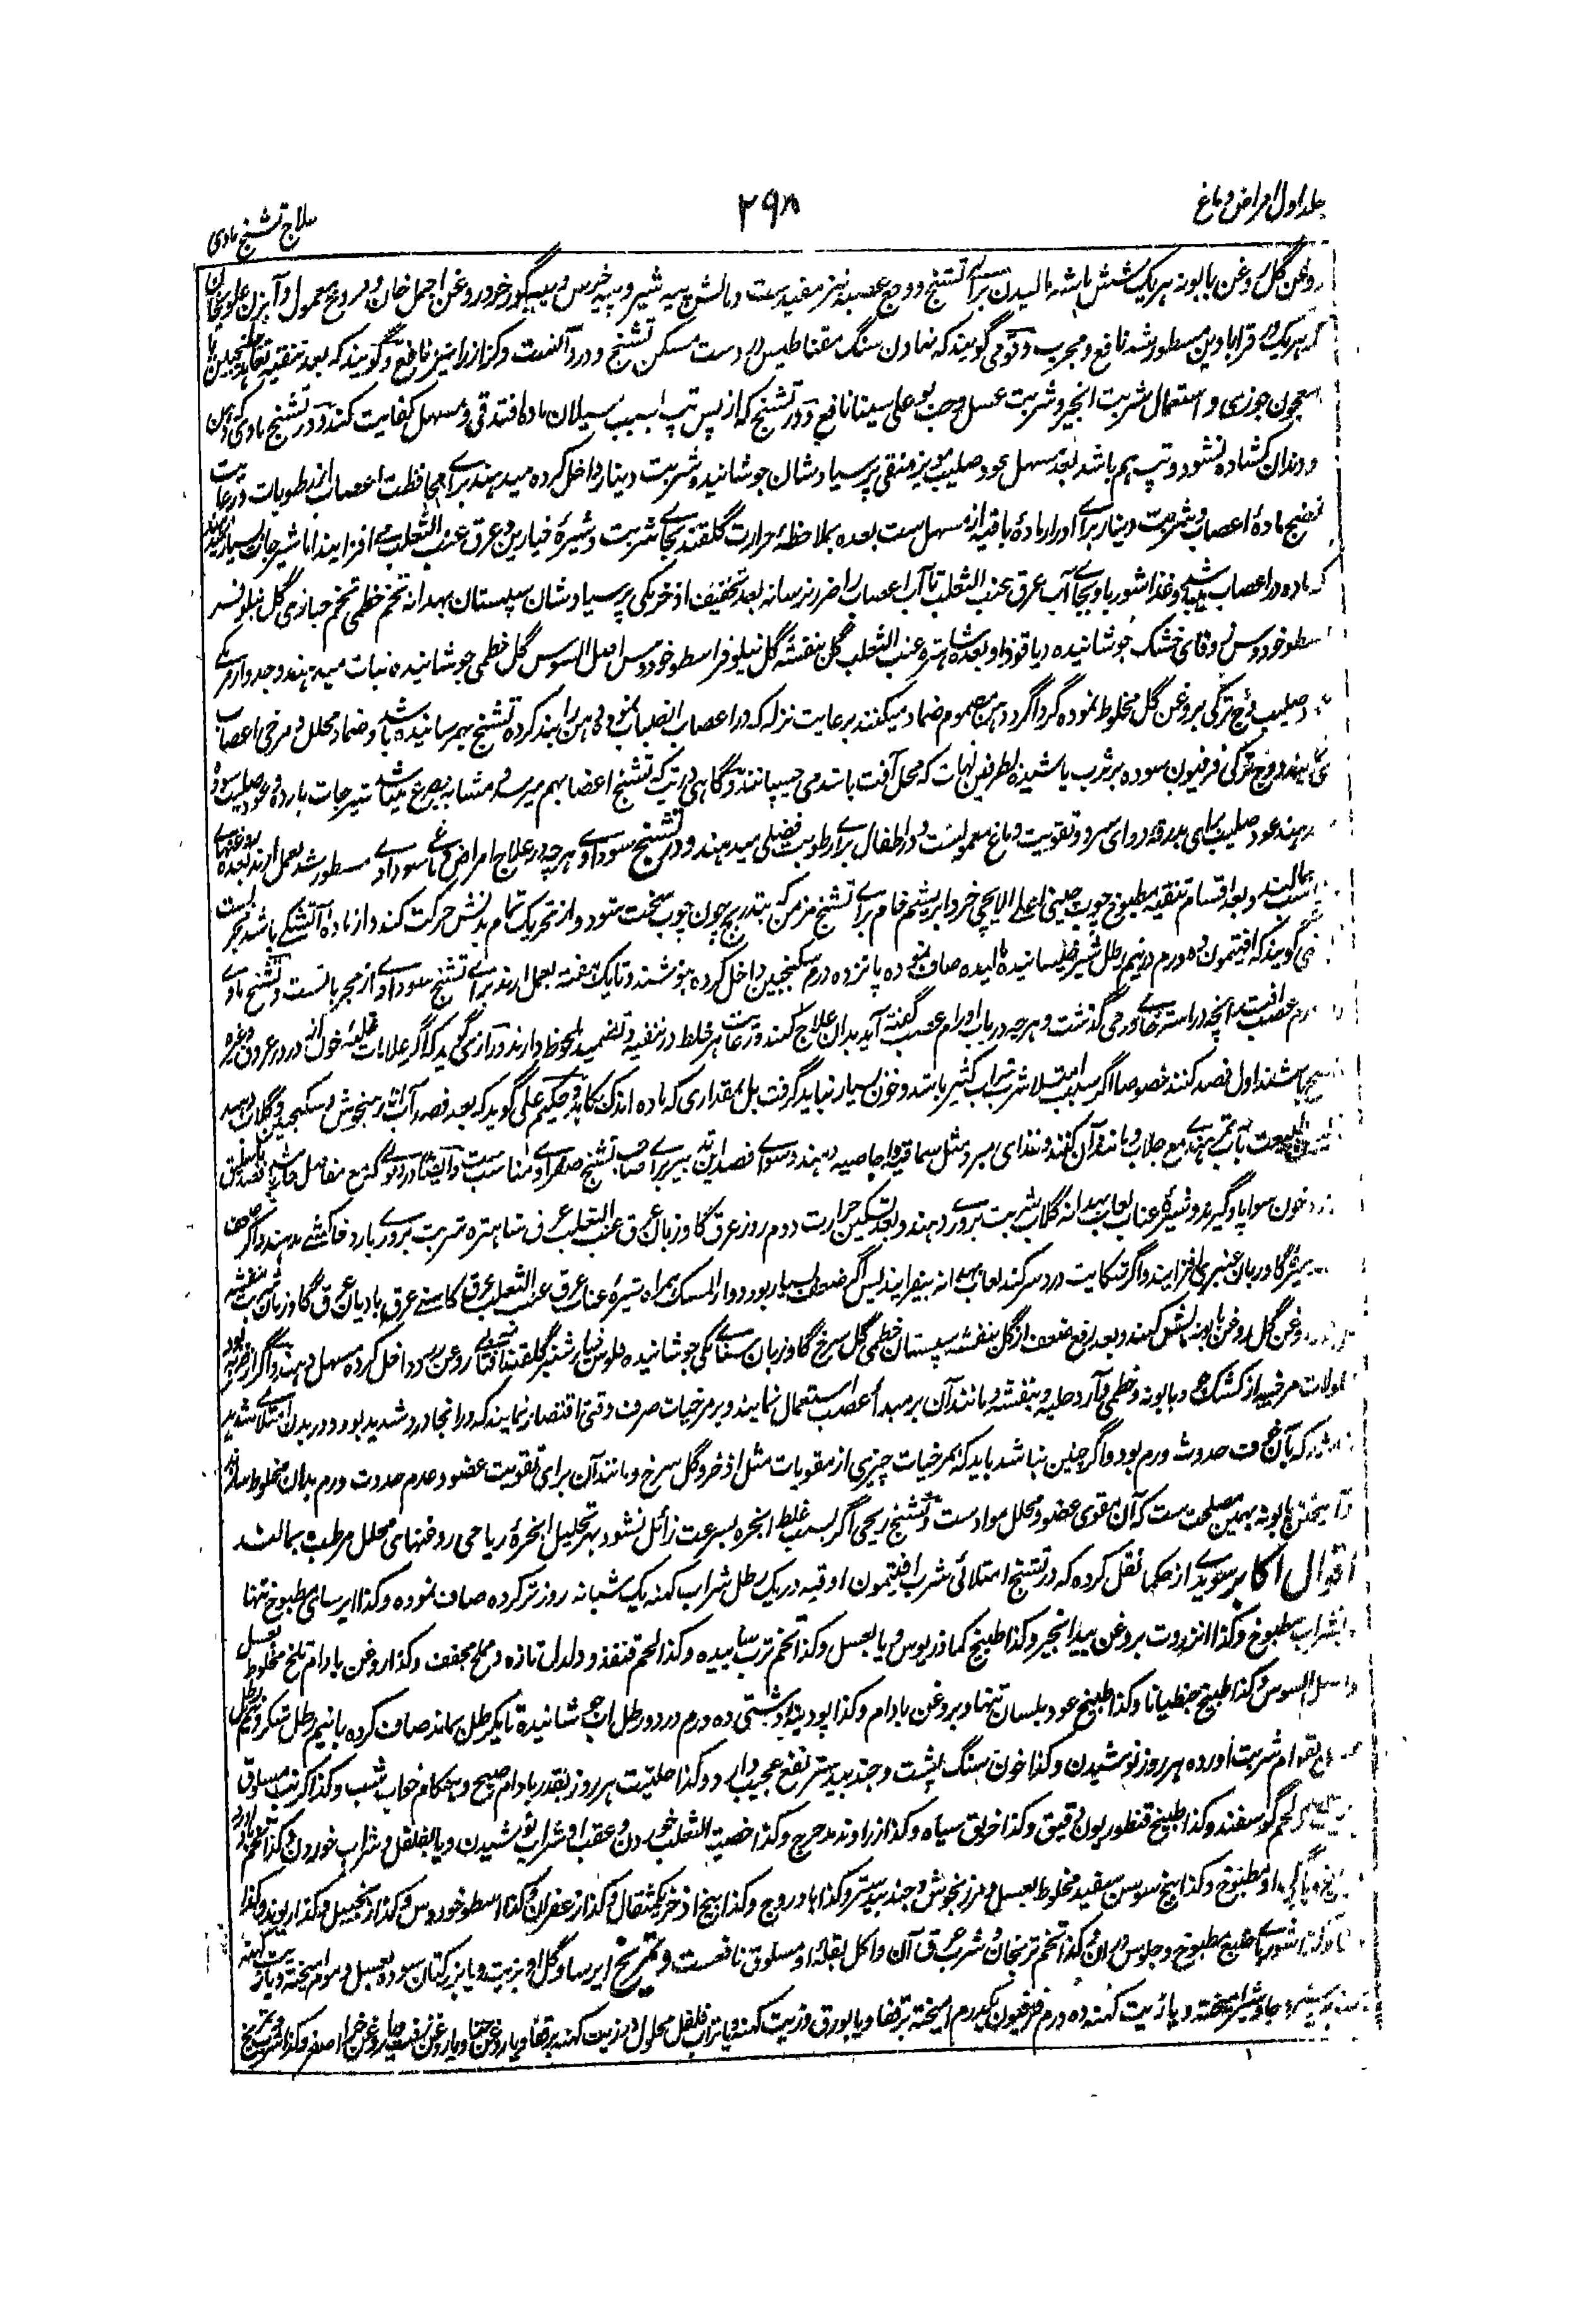 جلد اول امراض دماغ
۲۹۸
علاج تشنج مادی
روغن گل روغن بابونه هر یک شش ماشه مالیدن برای تشنج و وجع عصبه نیز مفید ست و مالش پیه شیر و پیه خرس و پیه گورخر و روغن اجمل خان و مروخ معمول و آبزن علویخان
که هر یک در قرابادین مسطور شد نافع و مجرب و قومی گویند که نهادن سنگ مقناطیس در دست مسکن تشنج و درد آنست و کزاز را نیز نافع و گویند که بعد تنقیه
معجون جوزی و استعمال شربت انجیر و شربت عسل و حب بو علی سینا نافع و در تشنج که از پس تپ بسبب سیلان ماده افتد قی و مسهل کفایت کند و در تشنج مادی که دهن
و دندان کشاده نشود و تپ هم باشد بعد مسهل عود صلیب مویز منقی پرسیاوشان جوشانیده شربت دینار داخل کرده میدهند برای محافظت اعصاب از رطوبات و رعایت
نضج ماده اعصاب و شربت دینار برای ادرار ماده باقیه از مسهل ست بعده بملاحظه حرارت گلقند بجای شربت و شیره خیارین و عرق عنب الثعلب می افزایند اما شیره جات بسیار
که ماده در اعصاب باشد و غذا شوربا و بجای آب عرق عنب الثعلب تا آب اعصاب را ضرر نرساند بعد تخفیف اذخر مکی پرسیاوشان سپستان بهدانه تخم خطمی تخم خبازی گل نیلوفر
اسطوخودوس زوفای خشک جوشانیده دیاقوذا و بعده شاهتره عنب الثعلب گل بنفشه گل نیلوفر اسطوخودوس اصل السوس گل خطمی جوشانیده نبات میدهند و جدوار
عود صلیب وج ترکی بروغن گل مخلوط نموده گرداگرد دهن مضموم ضماد میکنند برعایت نزله که در اعصاب انصباب نموده دهن را بند کرده تشنج بهم رسانیده باشد و ضماد محلل و مرخی اعصاب
می نهند و وج ترکی فرفیون سوده بر ثرب پاشیده بطرفین لهات که محل آفت باشد می چسپانند و گاهی در تپ که تشنج اعضا بهم میرسد و مشابه بصرع میباشد شیره جات بارده و عود صلیب سوده
میدهند عود صلیب برای بدرقه دوای سرد و تقویت دماغ معمولست و در اطفال برای رطوبت فضلی میدهند و در تشنج سوداوی هر چه در علاج امراض دماغی سوداوی مسطور شد بعمل آرند بعده روغنهای
بمالند و بعد اقسام تنقیه مطبوخ چوب چینی اعلی الایچی خرد ابریشم خام برای تشنج مزمن که بتدریج چون چوب سخت شود و از تحریک تمام بدنش حرکت کند و از ماده آتشکی باشد مجرب ست
گویند که افتیمون ده درم در نیم رطل شیر خیسانیده مالیده صاف نموده پانزده درم سکنجبین داخل کرده بنوشند و تا یک هفته بعمل آرند برای تشنج سوداوی از مجربانست و تشنج مادی
ورم عصب ست آنچه در استرخای ورمی گذشت و هرچه در باب اورام عصب گفته آید بدان علاج کنند و رعایت هر خلط در تنقیه و تضمید ملحوظ دارند و رازی گوید که اگر علامات غلبه خون در عروق وغیره
باشند اول فصد کنند خصوصا اگر بسبب امتلا شرب شراب کثیر باشد و خون بسیار نباید گرفت بل بمقداری که ماده اندک بکاهد و حکیم علی گوید که بعد فصد آب مرزنجوش و سکنجبین و گلاب دهند
تلیین طبیعت بآب تمر هندی مع جلاب و مانند آن کنند و غذای سرد مثل سماقیه و اجاصیه دهند و سوای فصد این تدبیر برای صاحب تشنج صفراوی مناسب ست
خون سوا پاو گیرند و شیره عناب لعاب بهدانه گلاب شربت بزوری دهند و بعد تسکین حرارت دوم روز عرق گاوزبان عرق عنب الثعلب عرق شاهتره شربت بزوری بارد خاکشی دهند و اگر ضعف
خمیره گاوزبان عنبری افزایند و اگر شکایت درد سر کند لعاب بهدانه بیفزایند پس اگر ضعف بسیار بود دوار المسک همراه شیره عناب عرق عنب الثعلب عرق کاسنی عرق بادیان عرق گاوزبان شربت بنفشه
روغن گل روغن بابونه مالش کنند و بعد رفع ضعف از گل بنفشه سپستان خطمی گل سرخ گاوزبان سنای مکی جوشانیده فلوس خیارشنبر گلقند آفتابی روغن بید داخل کرده مسهل دهند و اگر از ضربه بود
نطولات مرخیه از کشک جو و بابونه و خطمی و آرد حلبه و بنفشه و مانند آن بر مبدأ عصب استعمال نمایند و بر مرخیات صرف وقتی اقتصار نمایند که در انجا درد شدید بود و در بدن امتلای شدید
نباشد که بآن خوف حدوث ورم بود و اگر چنین نباشد باید که بمرخیات چیزی از مقویات مثل اذخر و گل سرخ و مانند آن برای تقویت عضو و عدم حدوث ورم بدان مخلوط سازند
و آمیختن بابونه بهمین مصلحت ست که آن مقوی عضو و محلل مواد ست و تشنج ریحی اگر بسبب غلظ ابخره بسرعت زائل نشود بهر تحلیل ابخره ریاحی روغنهای محلل مرطب بمالند
اقوال اکابر سویدی از حکما نقل کرده که در تشنج امتلائی شرب افتیمون اوقیه در یک رطل شراب کهنه یک شبانه روز تر کرده صاف نموده و کذا ایرسای مطبوخ تنها
بشراب مطبوخ و کذا انزروت بروغن بیدانجیر و کذا طبیخ کمافریوس و یا بعسل و کذا تخم ترب ساییده و کذا لحم قنفذ و دلدل تازه و مملح مجفف و کذا روغن بادام تلخ مخلوط بعسل
و اصل السوس و کذا طبیخ جنطیانا و کذا طبیخ عود بلسان تنها و بروغن بادام و کذا پودینه دشتی ده درم در دو رطل آب جوشانیده تا یکرطل بماند صاف کرده با نیم رطل شکر و نیم رطل
بقوام شربت آورده هر روز نوشیدن و کذا خون سنگ پشت و جندبیدستر نفع عجیب دارد و کذا حلتیت هر روز بقدر بادام صبح و هنگام خواب شب و کذا کرنب مسلوق
لحم گوسفند و کذا طبیخ قنطوریون دقیق و کذا خربق سیاه و کذا زراوند مدحرج و کذا خصیت الثعلب خوردن و عقب او شراب نوشیدن و یا بفلفل و شراب خوردن و کذا تخم
مطبوخ و کذا بیخ سوسن سفید مخلوط بعسل و مرزنجوش و جندبیدستر و کذا بادروج و کذا بیخ اذخر یکمثقال و کذا زعفران و کذا اسطوخودوس و کذا زنجبیل و کذا ریوند و کذا
شوربای ضبع مطبوخ و جلوس دران و کذا تخم ترنجان و شرب عرق آن و اکل بقله او مسلوق نافعست و تمریخ ایرسا و گل او بزیت و یا بزر کتان سوده بعسل و موم آمیخته و یا زیت کهنه
جاوشیر آمیخته و یا زیت کهنه ده درم فرفیون یکدرم آمیخته بر قفا و یا بورق و زیت کهنه و یا تراب فلفل محلول در زیت کهنه بر قفا و یا روغن حنا و یا روغن نفط و یا روغن خیری اصفر و کذا شرب و تمریخ